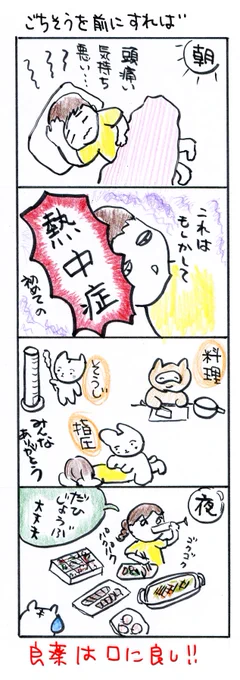 ごちそうを前にすれば
朝
頭痛い
気持ち
悪い…
これは
もしかして
熱中症
初めての
料理
そうじ
指圧
みんな
ありがとう
夜
だい
じょうぶ
大丈夫
ゴクゴク
パクパク
良薬は口に良し!!